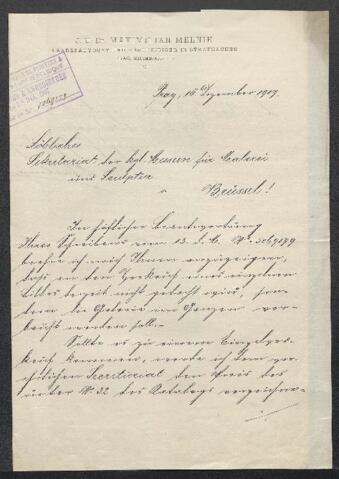 J. U. Dr.
LANDESADVOKAT
Prag, 16 Dezember 1909.
Löbliches
Sekretariat der kgl. Museen für Malerei
und Sculptur
Brüssel!
In höflicher Beantwortung
Ihres Schreibens vom 13. d. M. No
beehre ich mich Ihnen anzuzeigen,
dass an den Verkauf eines einzelnen
Bildes derzeit nicht gedacht wird, son-
dern die Galerie im Ganzen ver-
kauft werden soll.
Sollte es zu einem Einzelver-
kauf kommen, werde ich dem ver-
ehrlichen Secretariat den Preis des
unter No. 32 des Katalogs verzeichne-